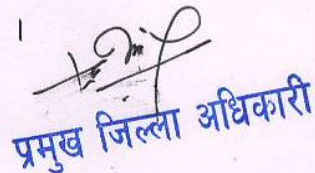 ।
प्रमुख जिल्ला अधिकारी